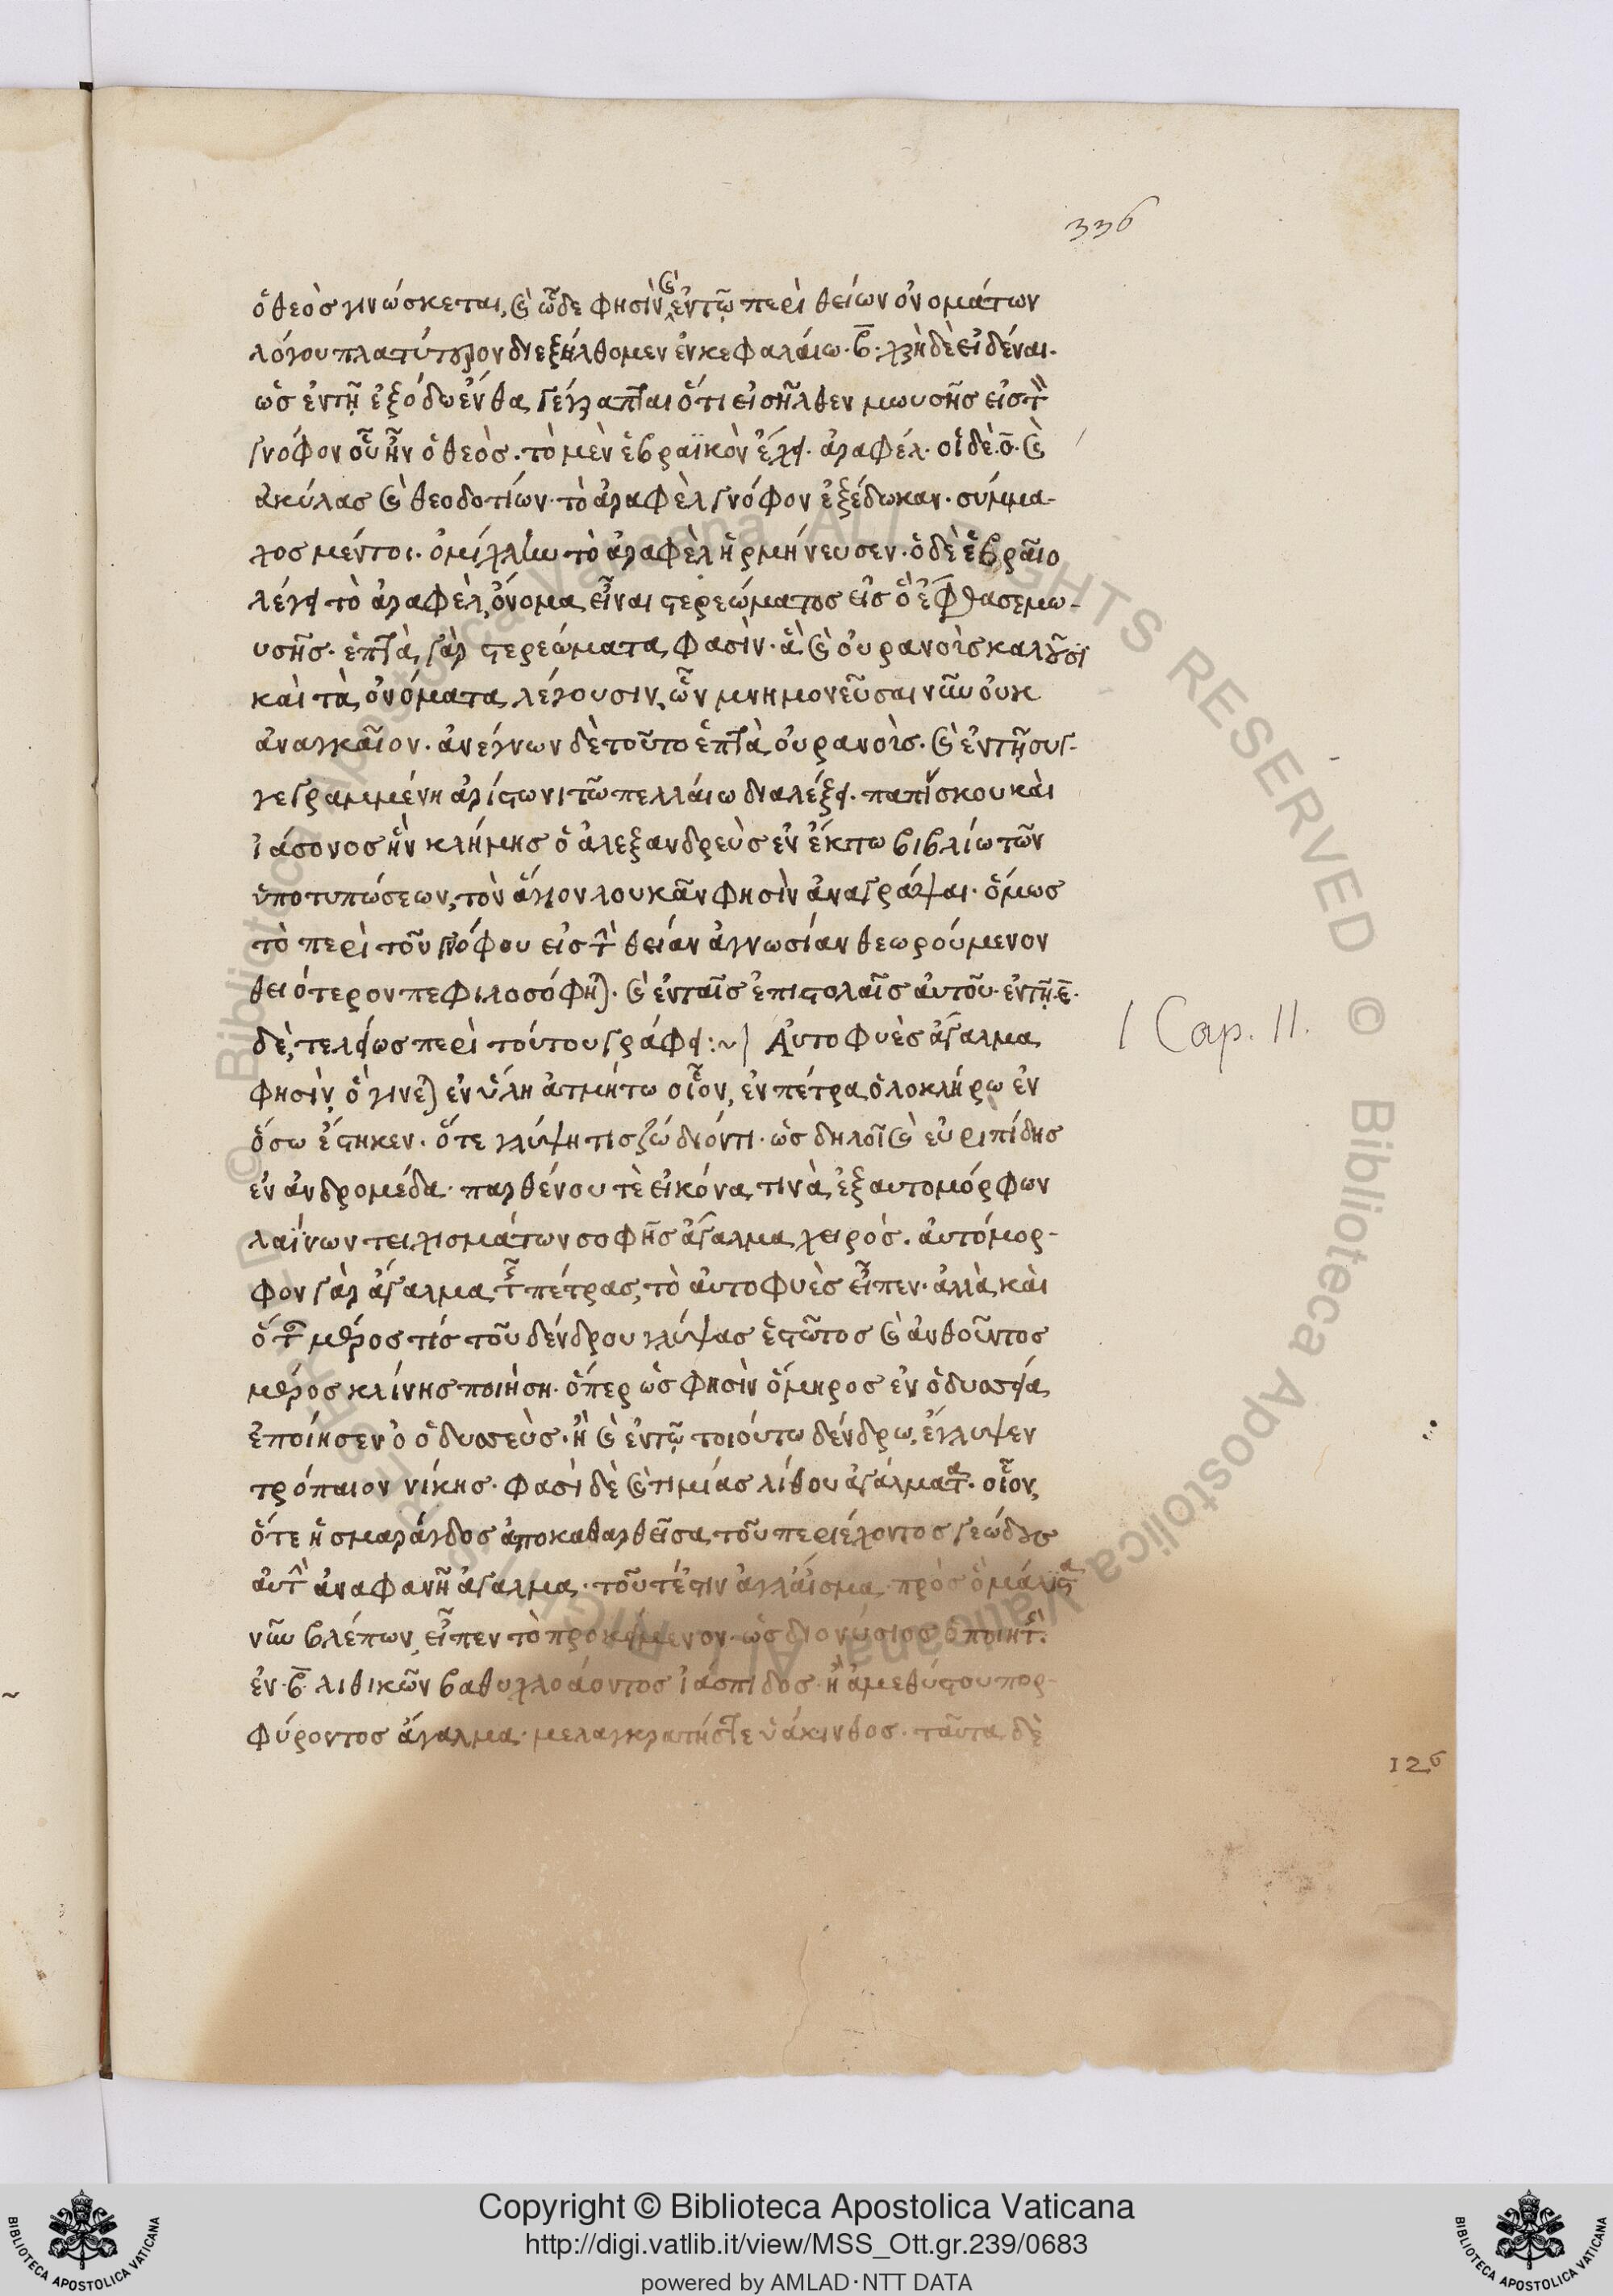 336
ὁ θεὸσ γινώσκεται, καὶ ὧδε φησὶν, καὶ ἐν τῷ περὶ θείων ὀνομάτων
λόγου πλατύτερον διεξήλθομεν ἐν κεφαλαίω· β̅· χρὴ δὲ εἰδέναι·
ὡσ ἐν τῇ ἐξόδω ἔνθα γέγραπται ὅτι εἰσῆλθεν μωυσῆσ εἰσ τὸν
γνόφον οὗ ἦν ὁ θεὸσ. τὸ μὲν ἑβραϊκὸν ἔχει· ἀραφέλ· οἱ δὲ· ο̅· καὶ
ἀκύλασ καὶ θεοδοτίων· τὸ ἀραφὲλ γνόφον ἐξέδωκαν· σύμμα-
χοσ μέντοι· ὁμίχλην τὸ ἀραφὲλ ἡρμήνευσεν· ὁ δὲ ἑβραῖο
λέγει τὸ ἀραφὲλ, ὄνομα εἶναι στερεώματοσ εἰσ ὃ ἔφθασε μω-
υσῆσ· ἑπτὰ γὰρ στερεώματα φασὶν· ἃ καὶ οὐρανοὶσ καλοῦσι
καὶ τὰ ὀνόματα λέγουσιν, ὧν μνημονεῦσαι νῦν οὐκ
ἀναγκαῖον· ἀνέγνων δὲ τοῦτο ἑπτὰ οὐρανοὶσ· καὶ ἐν τῇ συγ-
γεγραμμένη ἀρίστωνι τῶ πελλαίω διαλέξει· παπίσκου καὶ
ἰάσονοσ ἣν κλήμησ ὁ ἀλεξανδρεὺσ ἐν ἕκτω βιβλίω τῶν
ὑποτυπώσεων, τὸν ἅγιον λουκᾶν φησὶν ἀναγράψαι· ὅμωσ
τὸ περὶ τοῦ γνόφου εἰσ τὴν θείαν ἀγνωσίαν θεωρούμενον
θειότερον πεφιλοσόφηται· καὶ ἐν ταῖσ ἐπιστολαῖσ αὐτοῦ· ἐν τῇ· ε̅·
δὲ, τελείωσ περὶ τούτου γράφει:~ Αὐτοφυὲσ ἄγαλμα
Cap. 11.
φησὶν, ὃ γίνεται ἐν ὕλη ἀτμήτω οἷον, ἐν πέτρα ὁλοκλήρω ἐν
ὅσω ἕστηκεν· ὅτε γλύψη τισ ζώδιόν τι· ὡσ δηλοῖ καὶ εὐριπίδησ
ἐν ἀνδρομέδα· παρθένου τὲ εἰκόνα τινὰ ἐξ αυτομόρφων
λαΐνων τειχισμάτων σοφῆσ ἄγαλμα χειρόσ. αὐτόμορ-
φον γὰρ ἄγαλμα τῆσ πέτρασ, τὸ αὐτοφυὲσ εἶπεν· ἀλλὰ καὶ
ὅταν μέροσ τίσ τοῦ δένδρου γλύψασ ἑστῶτοσ καὶ ἀνθοῦντοσ
μέροσ κλίνησ ποιήση· ὅπερ ὡσ φησὶν ὅμηροσ ἐν ὀδυσσεία
ἐποίησεν ὁ ὀδυσσεὺσ· ἢ καὶ ἐν τῷ τοιούτω δένδρω, ἔγλυψεν
τρόπαιον νίκησ· φασὶ δὲ καὶ τιμίασ λίθου ἀγάλματα· οἷον,
ὅτε ἡ σμαράγδοσ ἀποκαθαρθεῖσα τοῦ περιέχοντοσ γεώδουσ
αὐτὴν ἀναφανῆ ἄγαλμα· τοῦτέστιν ἀγλάϊσμα· πρὸσ ὃ μάλιστα
νῦν βλέπων, εἶπεν τὸ προκείμενον· ὡσ διονύσιοσ ὁ ποιητὴσ·
ἐν· β̅· λιθικῶν βαθυχλοάοντοσ ἰάσπιδοσ· ἢ ἀμεθύστου πορ-
φύροντοσ ἄγαλμα· μελαγκρατήσ τε ὑάκινθοσ· ταῦτα δὲ
126
Copyright © Biblioteca Apostolica Vaticana
http://digi.vatlib.it/view/MSS_Ott.gr.239/0683
powered by AMLAD·NTT DATA